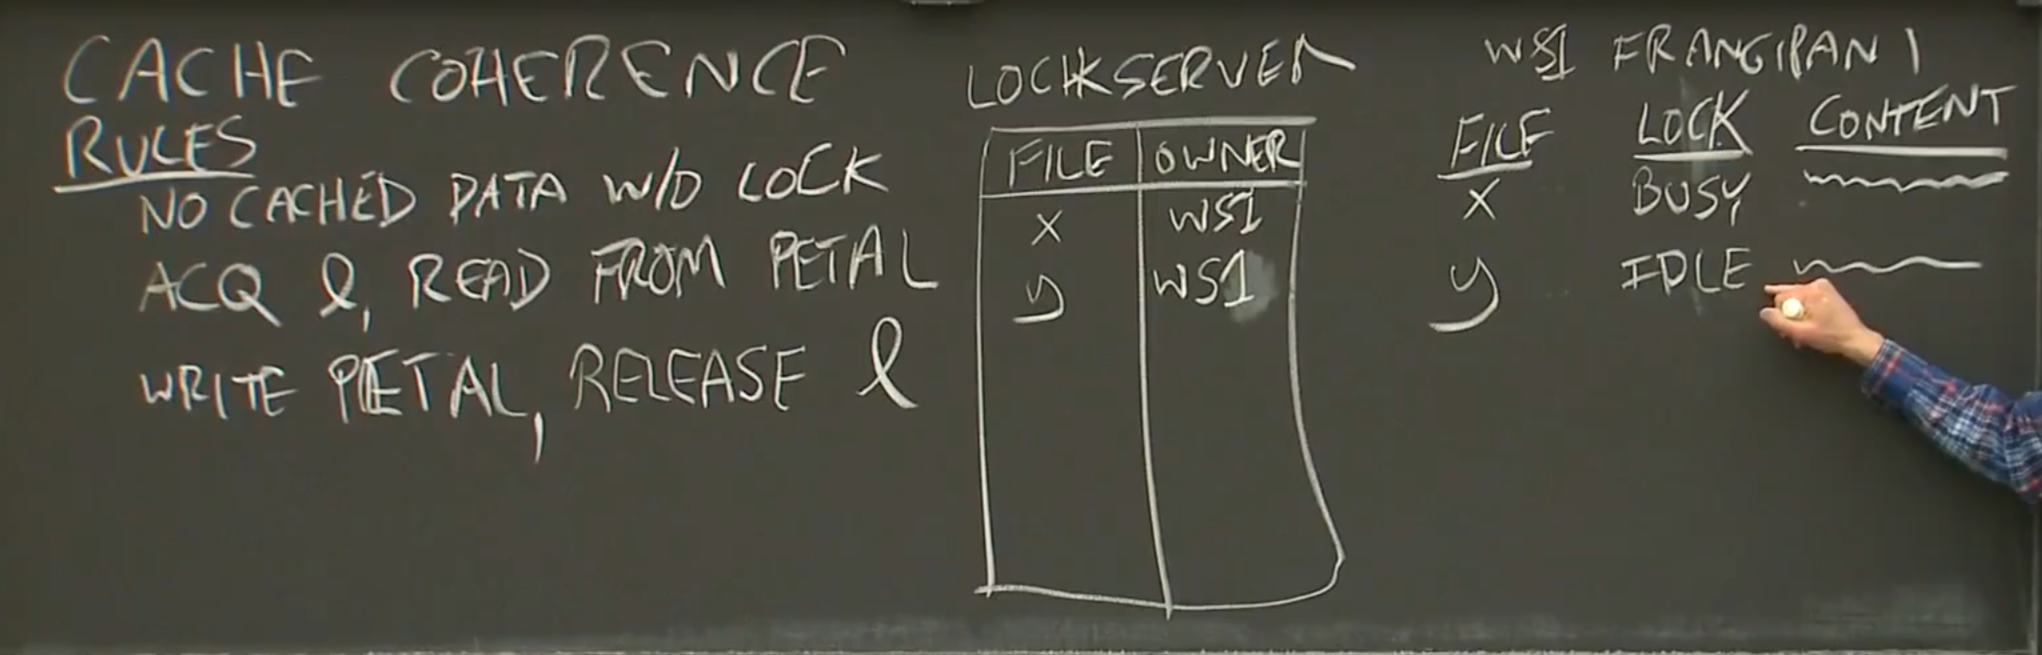 CACHE COHERENCE
RULES
NO CACHED DATA W/O LOCK
ACQ l, READ FROM PETAL
WRITE PETAL, RELEASE l
LOCKSERVER
FILE OWNER
X WS1
y WS1
WS1 FRANGIPANI
FILE LOCK CONTENT
X BUSY
y IDLE